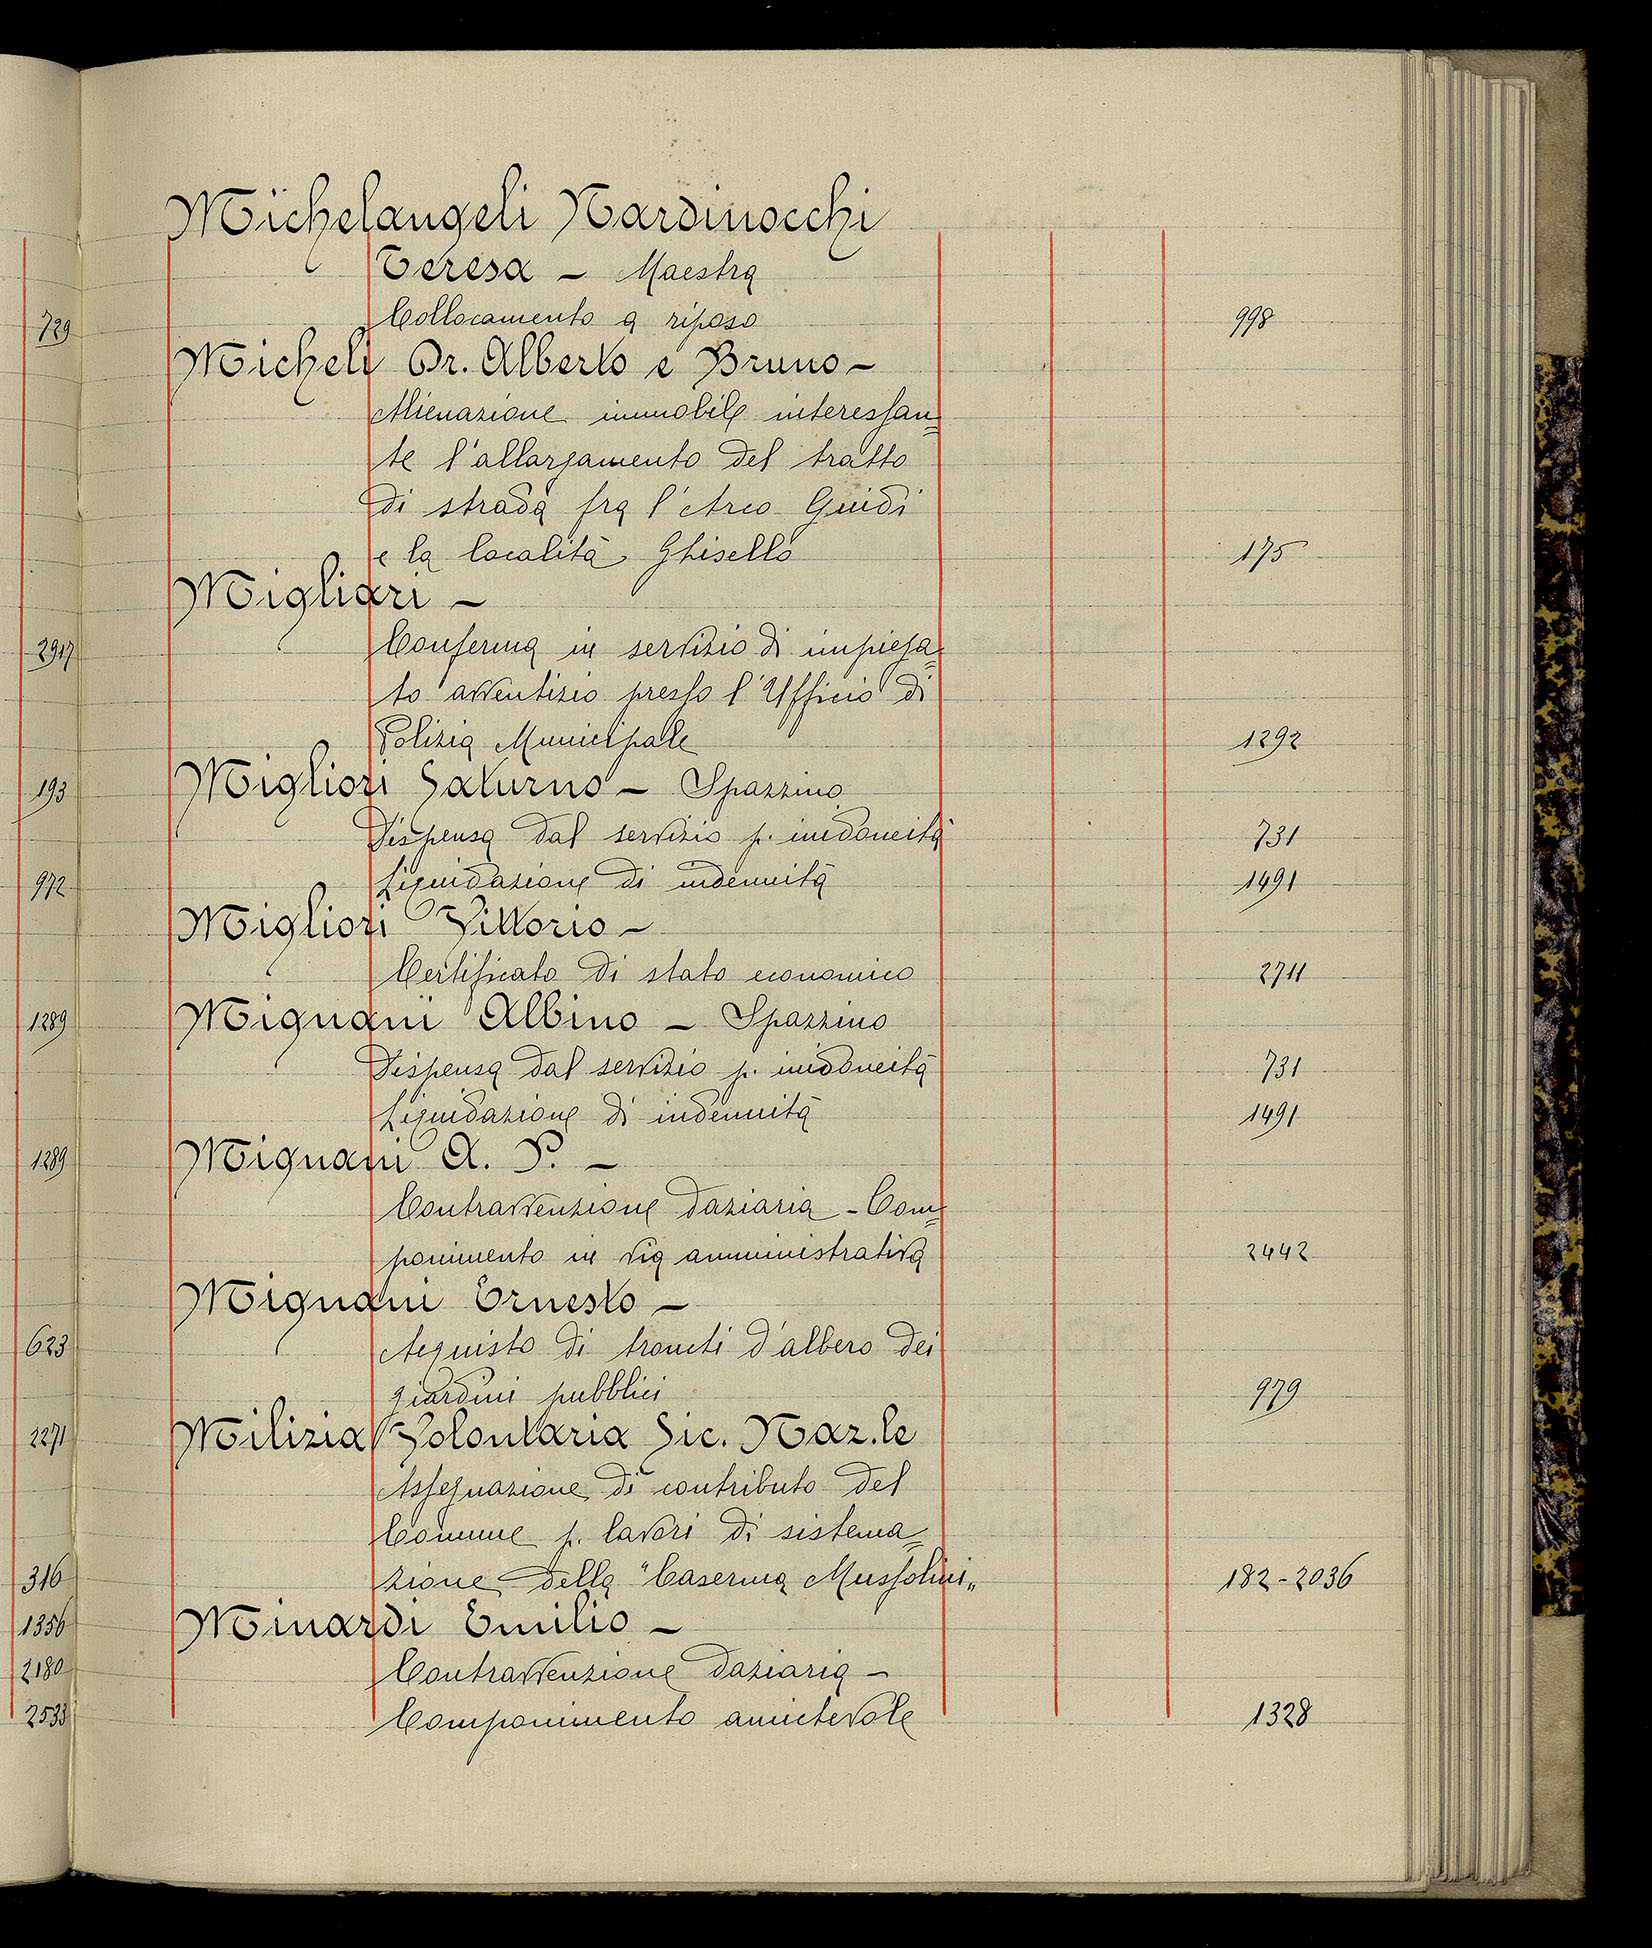 729
2917
193
972
1289
1289
623
2271
316
1356
2180
2533
Michelangeli Nardinocchi
Teresa – Maestra
Collocamento a riposo 998
Micheli Dr. Alberto e Bruno –
Alienazione immobile interessan=
te l'allargamento del tratto
di strada fra l'Arco Guidi
e la località Ghisello 175
Migliari –
Conferma in servizio di impiega=
to avventizio presso l'Ufficio di
Polizia Municipale 1292
Migliori Saturno – Spazzino
Dispensa dal servizio p. inidoneità 731
Liquidazione di indennità 1491
Migliori Vittorio –
Certificato di stato economico 2711
Mignani Albino – Spazzino
Dispensa dal servizio p. inidoneità 731
Liquidazione di indennità 1491
Mignani A. P. –
Contravvenzione daziaria – Com=
ponimento in via amministrativa 2442
Mignani Ernesto –
Acquisto di tronchi d'albero dei
giardini pubblici 979
Milizia Volontaria Sic. Naz.le
Assegnazione di contributo del
Comune p. lavori di sistema=
zione della "Caserma Mussolini„ 182-2036
Minardi Emilio –
Contravvenzione daziaria –
Componimento amichevole 1328